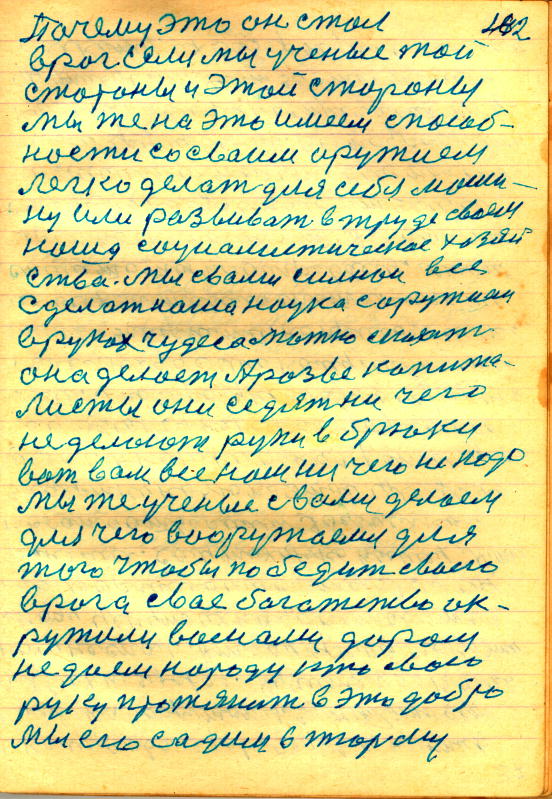 Почему это он стал 442
враг. Если мы ученые той
стороны и этой стороны
мы же на это имеем способ-
ности со сваим оружием
легко делат для себя маши-
ну или развиват в труде своем
наша социалистическое хозяй
ства. Мы свами силной все
сделат наша наука с оружием
в руках чудеса можно сказат
она делает. А розве капита-
листы они седят ни чего
не делают руки в брюки
вот вам все нам ни чего не надо
Мы же ученые свами делаем
для чего вооружаемы для
того чтобы победит своего
врага свае богатство ок-
ружили воснами даром
не даем народу кто свою
руку протянит в это добро
мы его садим в тюрму